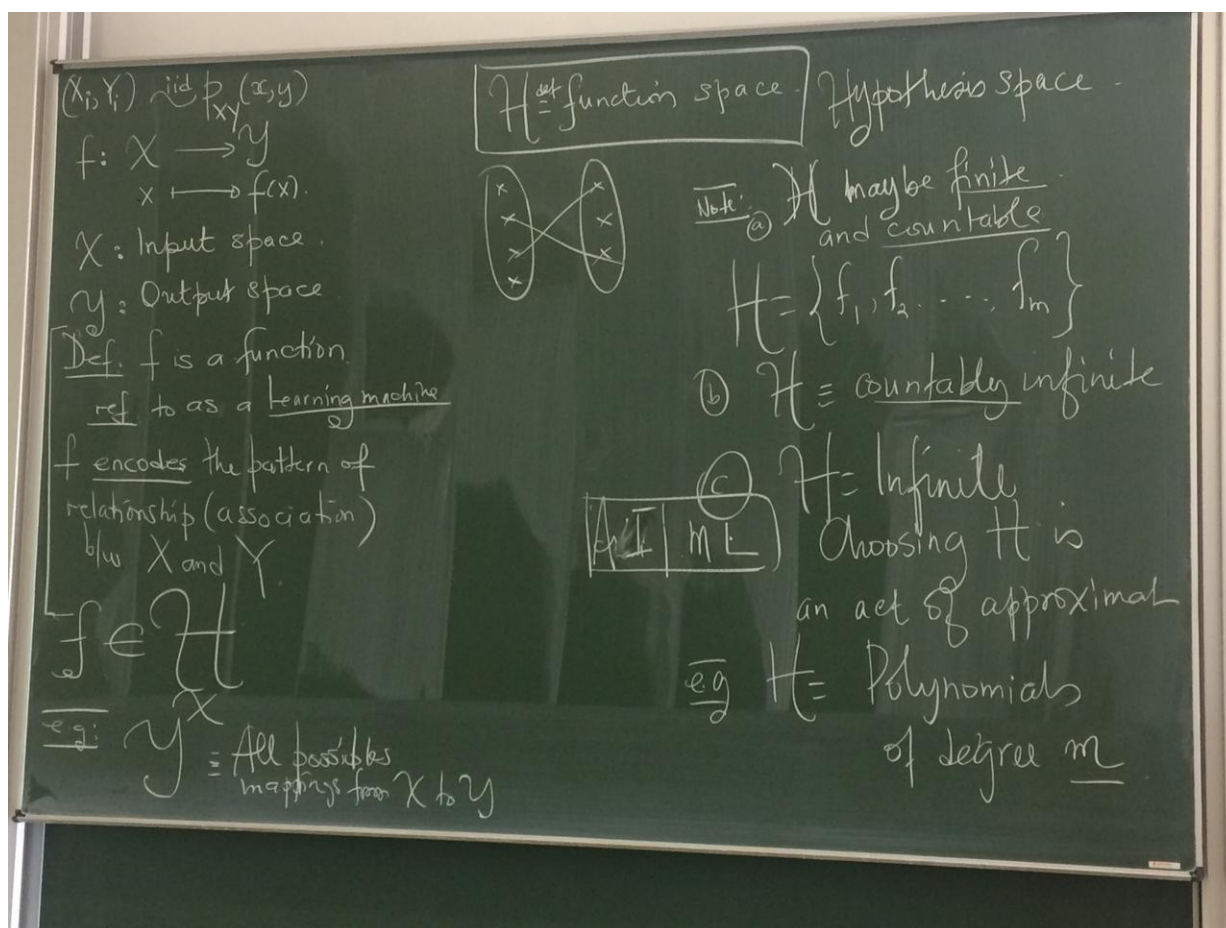 (Xi, Yi) ~iid pXY(x,y)
f: X → Y
x ↦ f(x).
X : Input space.
Y : Output space
Def. f is a function
ref to as a Learning machine
f encodes the pattern of
relationship (association)
b/w X and Y.
f ∈ H
e.g: Y^X ≡ All possibles
mappings from X to Y
H def= function space.
Hypothesis space.
Note: (a) H maybe finite
and countable
H = {f1, f2 ....., fm}
(b) H ≡ countably infinite
(c) H = Infinite
ML
Choosing H is
an act of approximat
e.g H = Polynomials
of degree m